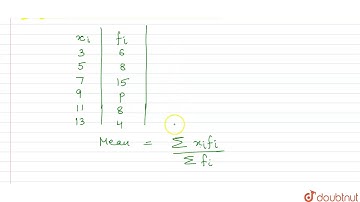 xi fi
3 6
5 8
7 15
9 P
11 8
13 4
Mean = Σ xifi
Σ fi
doubtnut